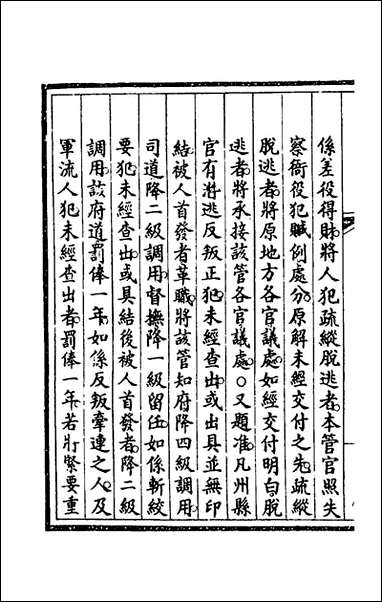 係差役得財將人犯疏縱脫逃者本管官照失
察衙役犯贓例處分原解未經交付之先疏縱
脫逃者將原地方各官議處如經交付明白脫
逃者將承接該管各官議處〇又題准凡州縣
官有潛逃反叛正犯未經查出或出具並無印
結被人首發者革職將該管知府降四級調用
司道降二級調用督撫降一級留任如係斬絞
要犯未經查出或具結後被人首發者降二級
調用該府道罰俸一年如係反叛牽連之人及
軍流人犯未經查出者罰俸一年若非緊要重